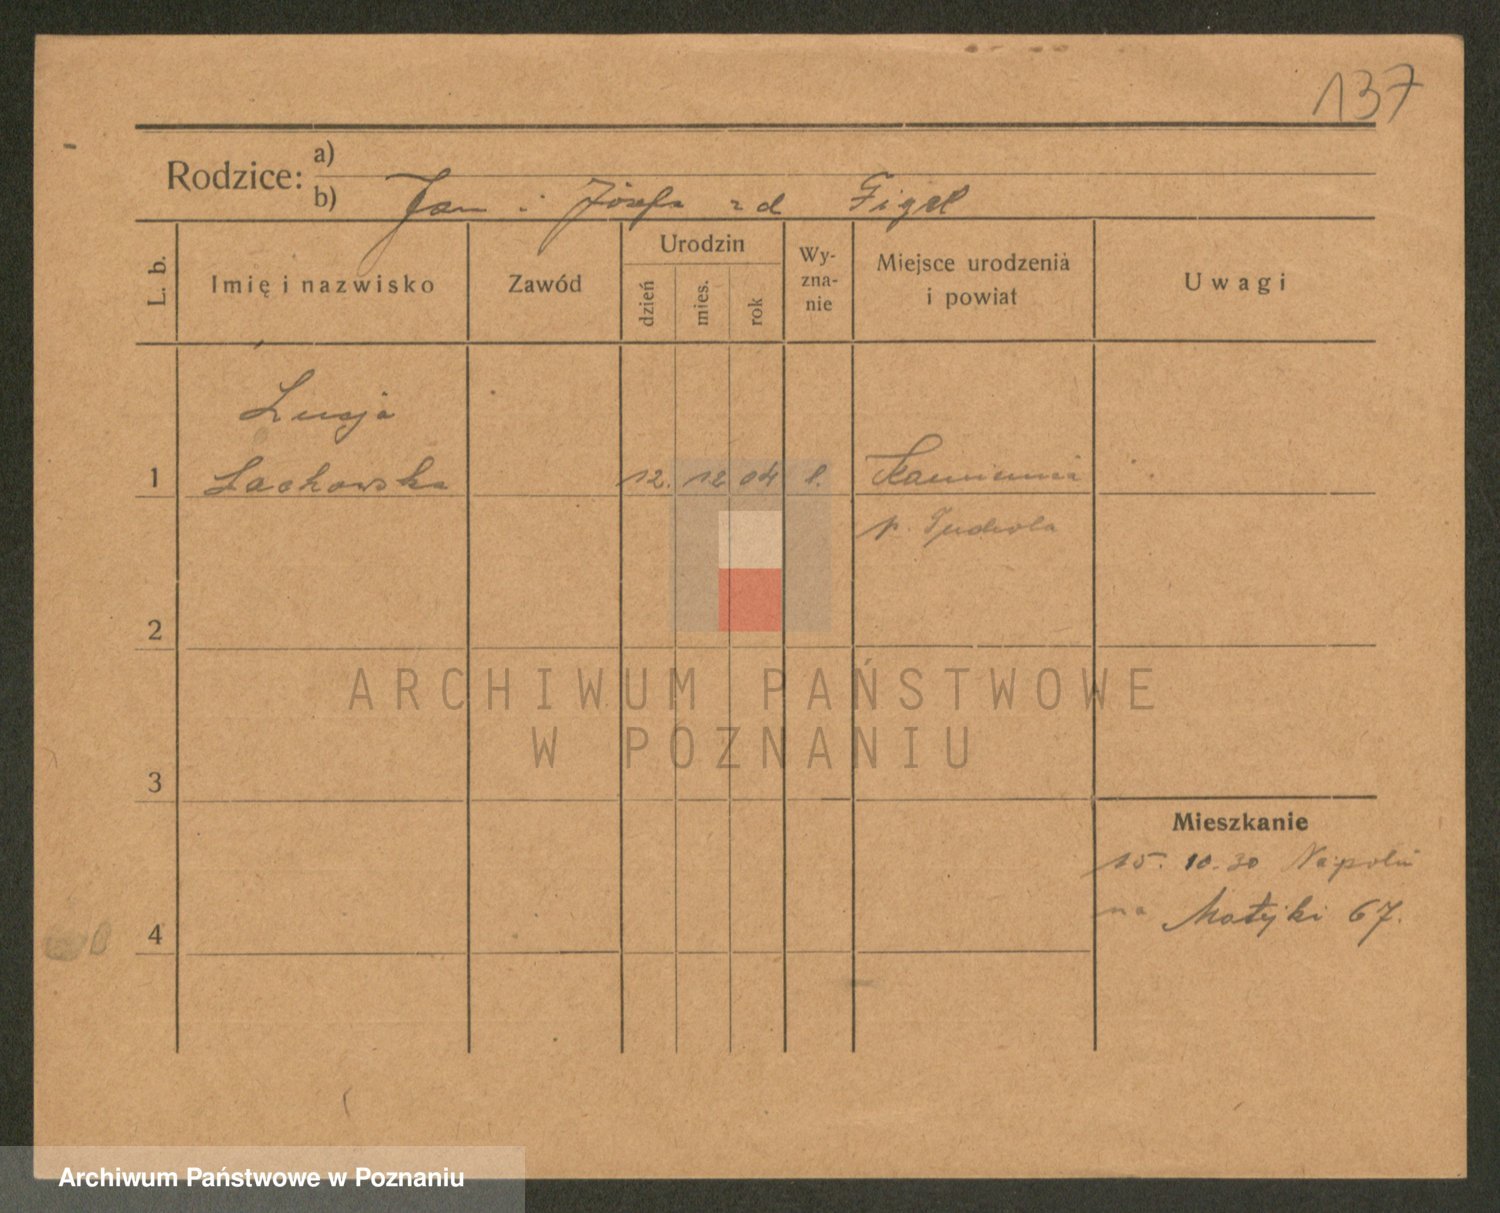 137
Rodzice: a)
b) Jan i Józefa z d Figel
L. b.
Imię i nazwisko
Zawód
Urodzin
dzień
mies.
rok
Wy-
zna-
nie
Miejsce urodzenia
i powiat
Uwagi
Lucja
1 Lachowska 12. 12 04
p. Tuchola
2
3
4
Mieszkanie
15. 10. 30
na Matejki 67.
ARCHIWUM PAŃSTWOWE
W POZNANIU
Archiwum Państwowe w Poznaniu